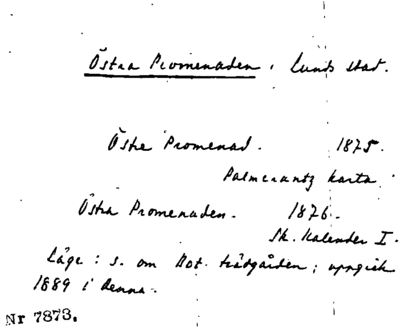 Östra Promenaden, Lunds stad.
Östre Promenad. 1875.
Palmcrantz karta.
Östra Promenaden. 1876.
Sk. Kalender I.
Läge: s. om Bot. trädgården; uppgick
1889 i denna.
Nr 7873.